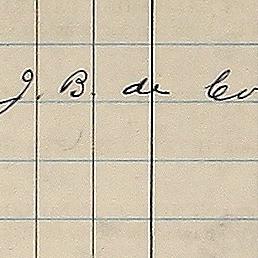 J. B. de Co